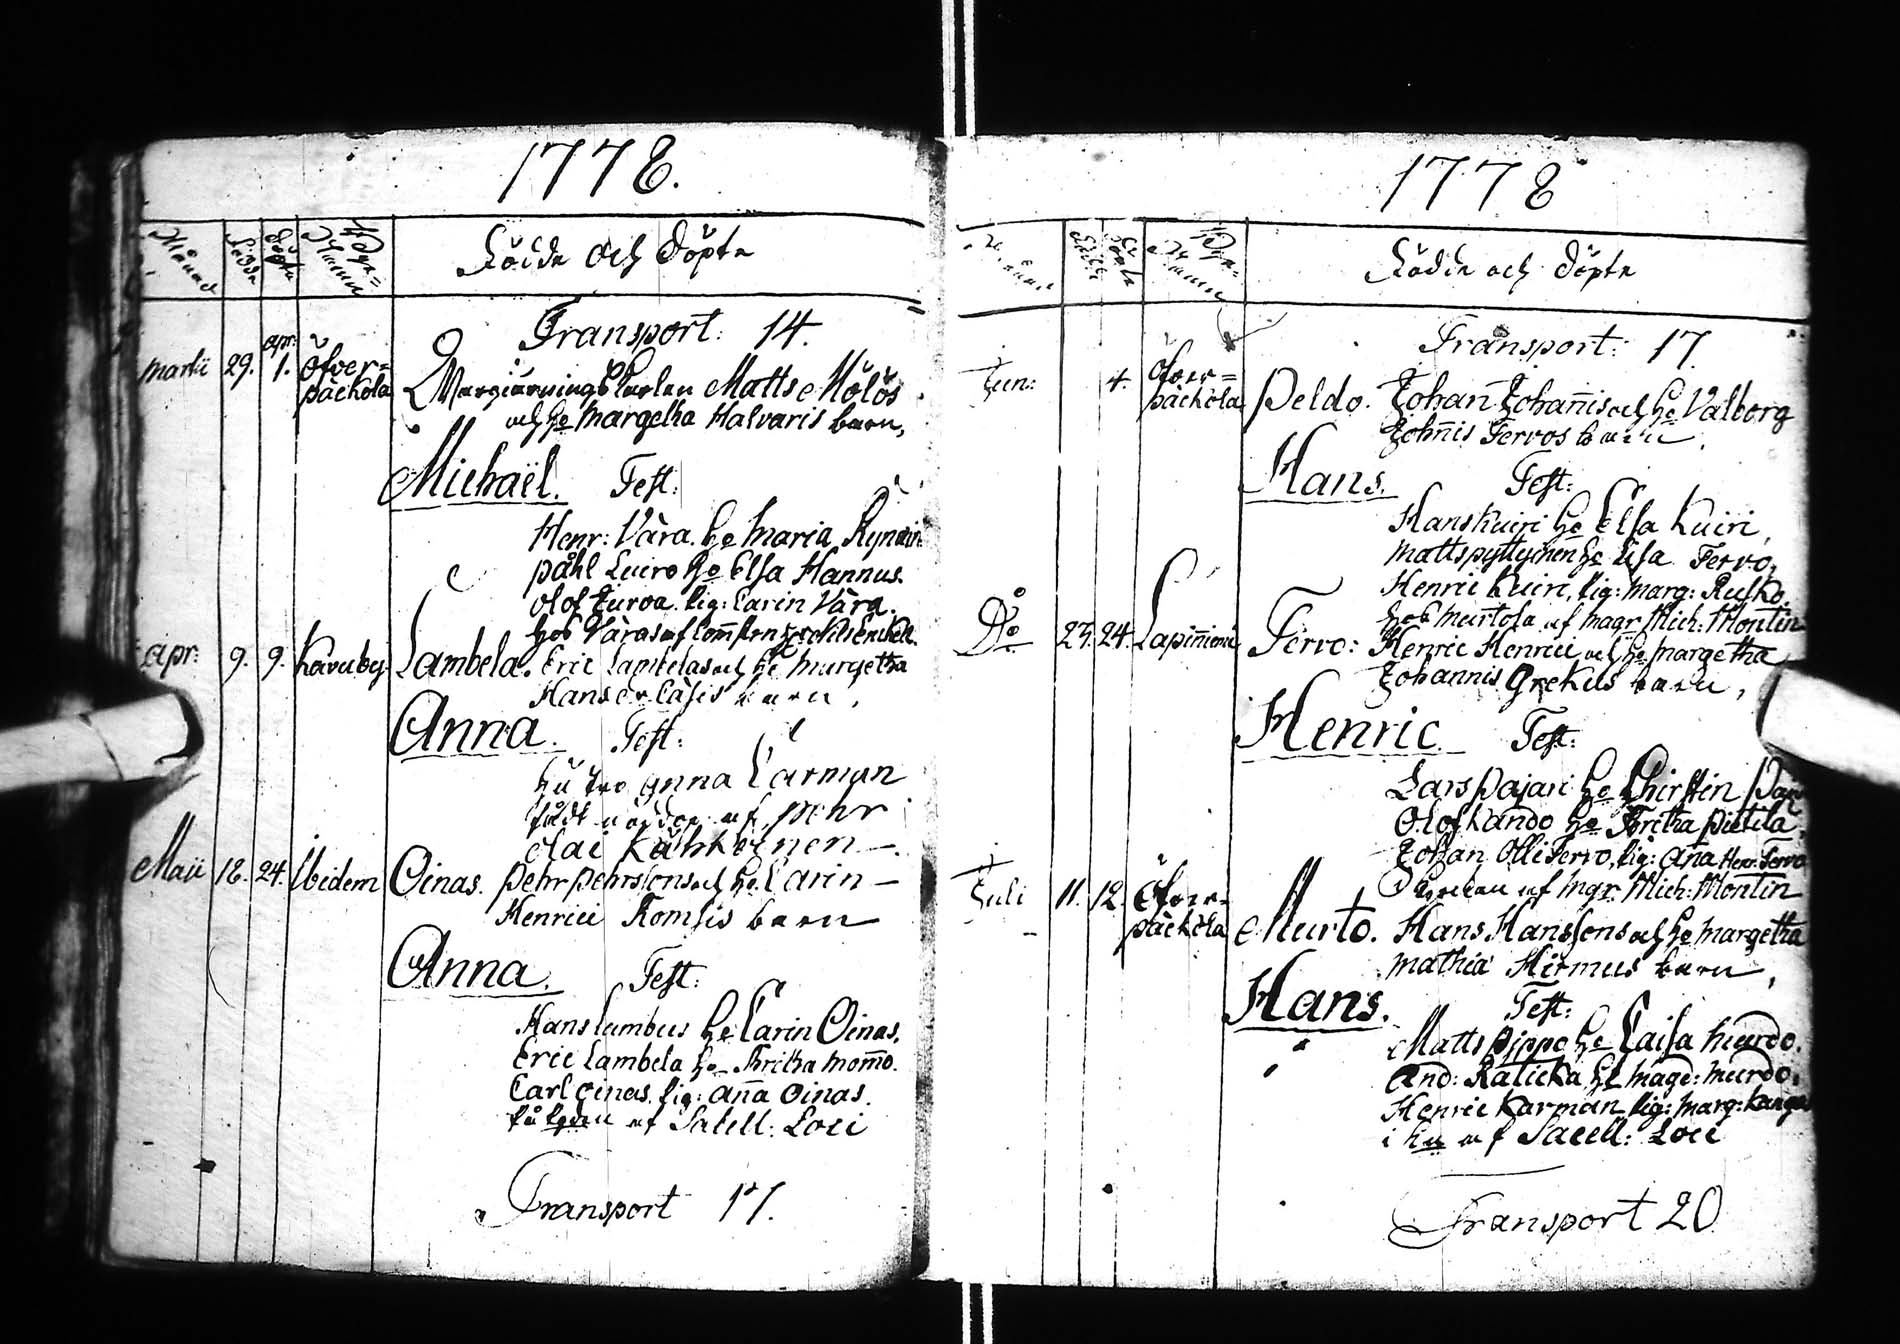 1778.
Månad Födde Döpte Bya-Namn Födde och Döpte
Transport: 14.
Martii 29. apr: 1. Öfver=
päckola karlen Matts Mölös
och h: Margetha Halvaris barn,
Michaël. Test:
Henr: Våra. h: Maria
påhl Luiro h: Elsa Hannus.
Olof pig: Carin Våra.
hos Våras af
Apr: 9. 9. Karuby Lambela. Eric Lambelas och h: Margetha
Hans barn,
Anna. Test:
Anna Carman
af Pehr
Olai
Maii 18. 24. Ibidem Oinas. Pehr Pehrssons och h: Carin
Henrici Romsis barn
Anna. Test:
Hans Lumbus h: Carin Oinas.
Eric Lambela h: Britha Mom̄o.
Carl Oinas. pig: An̄a Oinas.
af Sacell: Loci
Transport 17.
1778
Månad Födde Döpte Bya-Namn Födde och Döpte
Transport: 17.
Jun: 4. Öfver=
päckola Peldo. Johan Johan̄is och h: Valborg
Joh̄nis Fervos barn.
Hans. Test:
Hans Kuiri h: Elsa Kuiri,
Matts h: Elsa Fervo,
Henric Kuiri, pig: Marg: Rusko,
hos Murtola af Magr Mich: Montin
Do 23. 24. Lapin̄iemi Fervo: Henric Henrici och h: Margetha
Johannis Grekus barn,
Henric. Test:
Lars Pajari h: Chirstin
Olof Kando h: Britha Pietilä,
Johan Olli Fervo, pig: An̄a Henr: Fervo
af Mgr: Mich: Montin
Juli 11. 12. Öfver=
päckola Murto. Hans Hanssons och h: Margetha
Mathiæ Hirmus barn,
Hans. Test:
Matts Pippo h: Caisa Murdo.
And: Raticka h: Magd: Murdo.
Henric Karman pig: Marg: Kangas
af Sacell: Loci
Transport 20